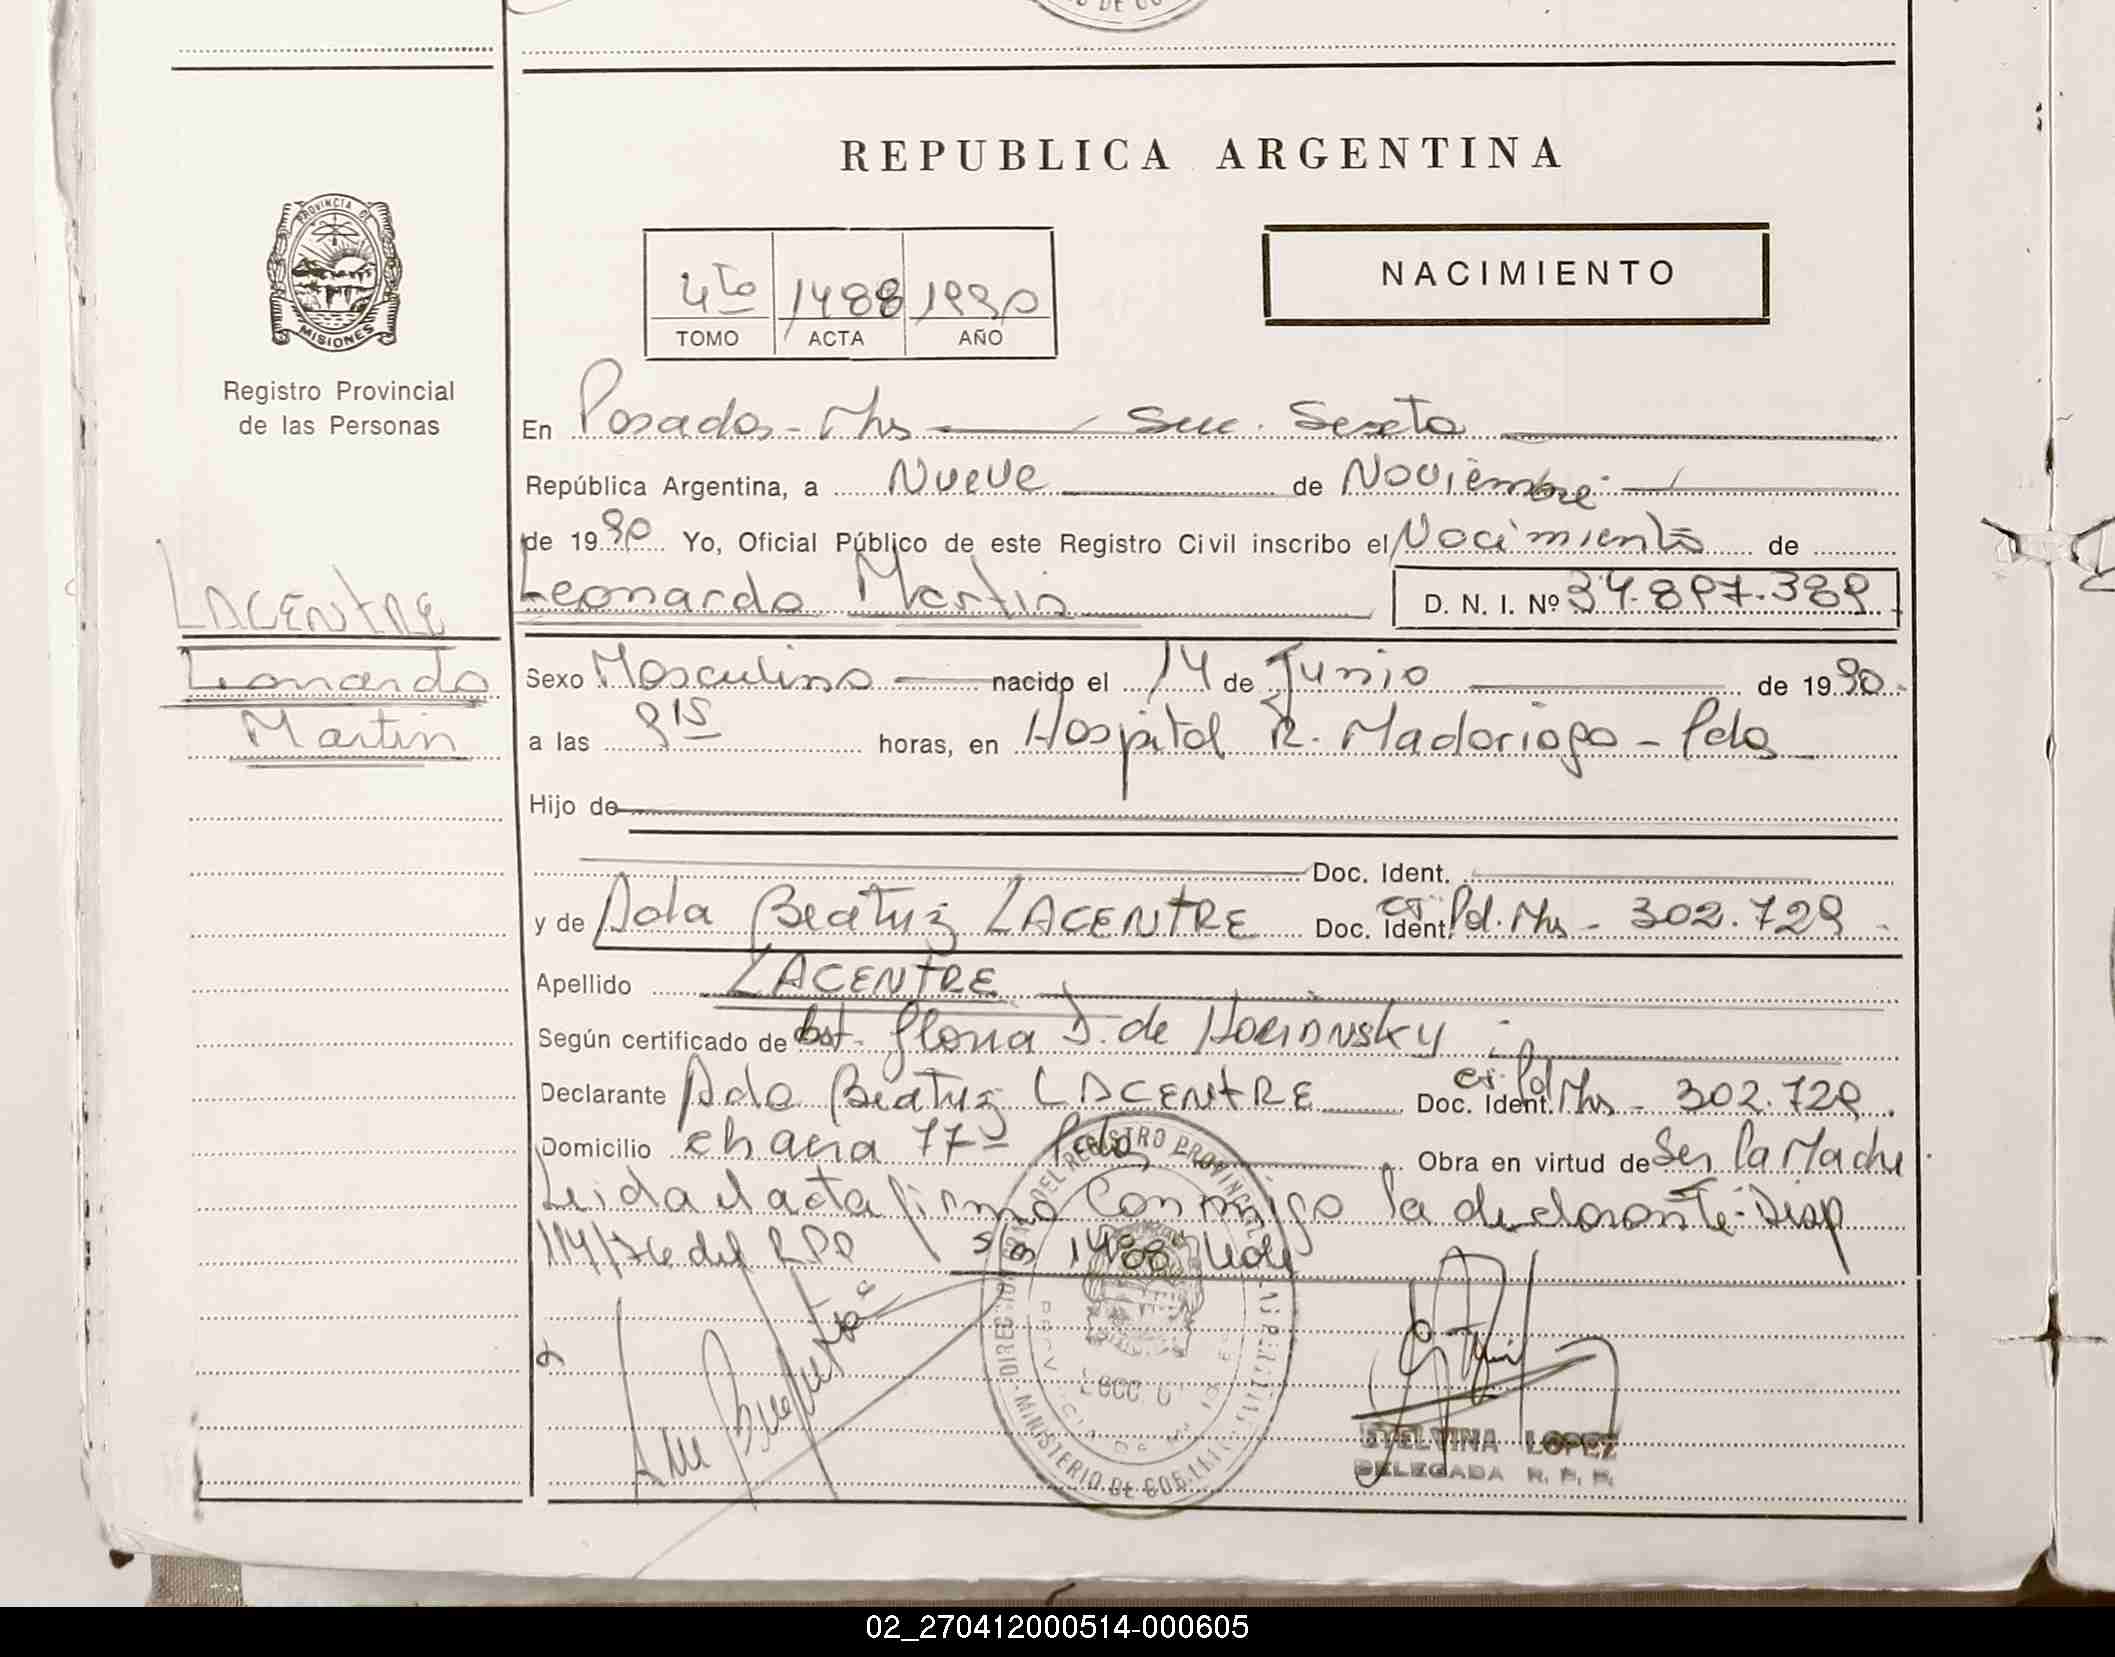 REPUBLICA ARGENTINA
PROVINCIA DE
MISIONES
Registro Provincial
de las Personas
NACIMIENTO
4to 1488 1990
TOMO ACTA AÑO
En Posadas - Mns Suc. Sexta
República Argentina, a Nueve de Noviembre
de 1990 Yo, Oficial Público de este Registro Civil inscribo el Nacimiento de
Leonardo Martin D. N. I. Nº 34.897.389
LACENTRE
Leonardo
Martin
Sexo Masculino nacido el 14 de Junio de 1990
a las 9 15 horas, en Hospital R. Madariaga - Pdas
Hijo de
Doc. Ident.
y de Ada Beatriz LACENTRE Doc. Ident. CI. Pol. Mns - 302.729
Apellido LACENTRE
Según certificado de Obst. Gloria D. de
Declarante Ada Beatriz LACENTRE Doc. Ident. CI. Pol Mns - 302.729.
Domicilio 77 - Pdas Obra en virtud de Ser la Madre
Leida el acta firma Conmigo la declarante - Disp
114/76 del RPP 1488 Vale
STELVINA LOPEZ
DELEGADA R. P. P.
02_270412000514-000605